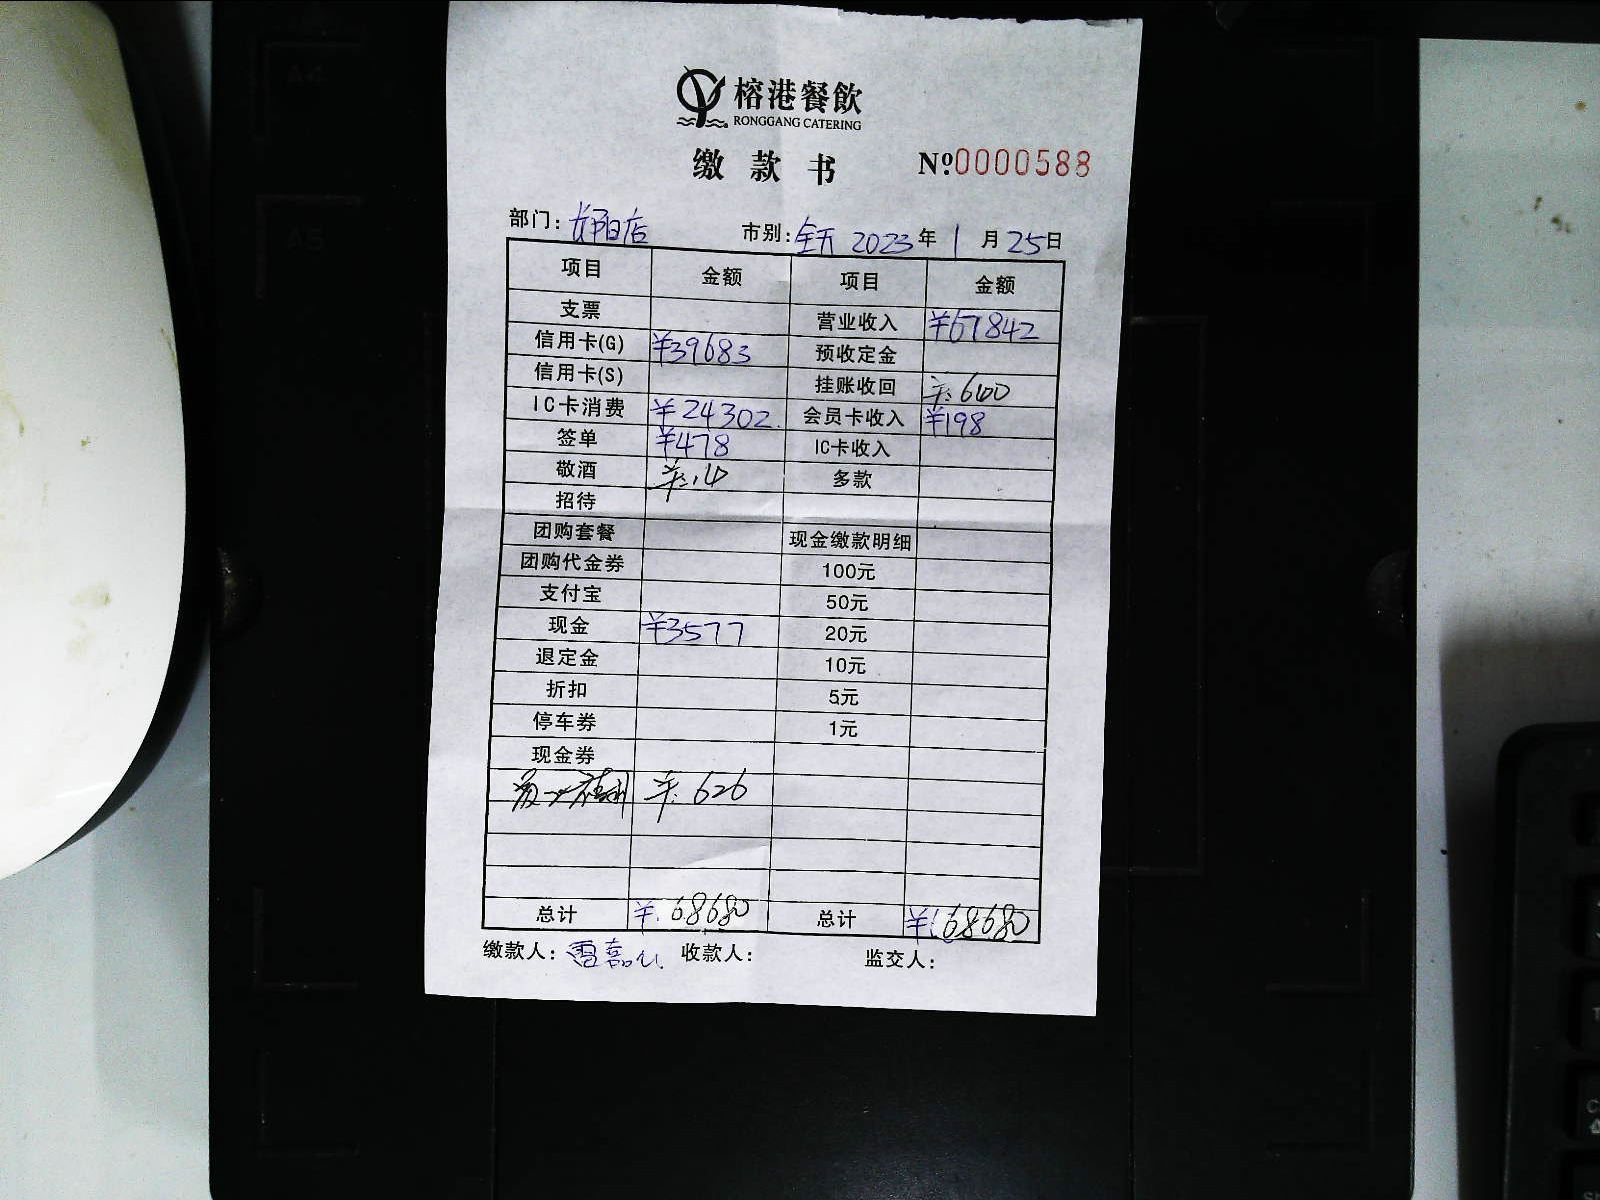 榕港餐飲
RONGGANG CATERING
缴款书 №0000588
部门: 阳店 市别: 全天 2023年 1月25日
项目 金额 项目 金额
支票 营业收入 ¥67842
信用卡(G) ¥39683 预收定金
信用卡(S) 挂账收回 ¥:640
IC卡消费 ¥24302 会员卡收入 ¥198
签单 ¥478 IC卡收入
敬酒 ¥:14 多款
招待
团购套餐 现金缴款明细
团购代金券 100元
支付宝 50元
现金 ¥3577 20元
退定金 10元
折扣 5元
停车券 1元
现金券
¥:626
总计 ¥:68680 总计 ¥:68680
缴款人: 雷嘉 收款人: 监交人:
A4
A5